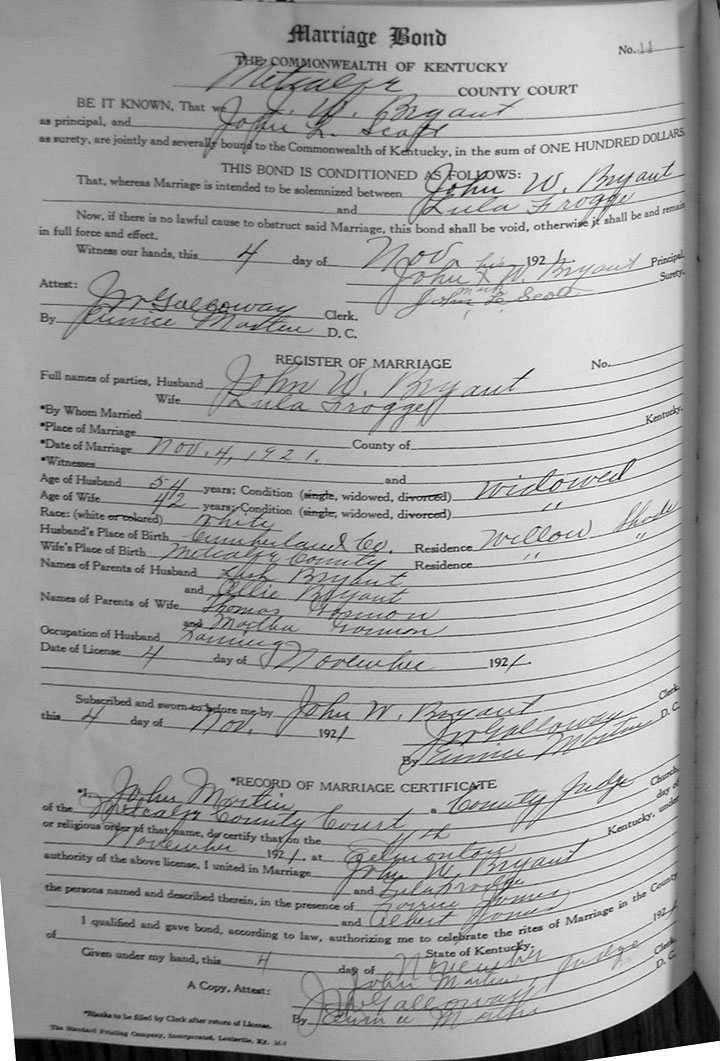 Marriage Bond
No. 11
THE COMMONWEALTH OF KENTUCKY
Metcalfe COUNTY COURT
BE IT KNOWN, That we J. W. Bryant
as principal, and John L. Scott
as surety, are jointly and severally bound to the Commonwealth of Kentucky, in the sum of ONE HUNDRED DOLLARS.
THIS BOND IS CONDITIONED AS FOLLOWS:
That, whereas Marriage is intended to be solemnized between John W. Bryant
and Lula Frogge
Now, if there is no lawful cause to obstruct said Marriage, this bond shall be void, otherwise it shall be and remain
in full force and effect.
Witness our hands, this 4 day of Nov. 1921.
his
John X W. Bryant Principal
mark
John L. Scott Surety.
Attest:
J W Galloway Clerk.
By Eunice Martin D. C.
REGISTER OF MARRIAGE No.
Full names of parties, Husband John W. Bryant
Wife Lula Frogge
*By Whom Married
*Place of Marriage County of Kentucky.
*Date of Marriage Nov. 4, 1921.
*Witnesses and
Age of Husband 54 years; Condition (single, widowed, divorced) widowed
Age of Wife 42 years; Condition (single, widowed, divorced) "
Race: (white or colored) White
Husband's Place of Birth Cumberland Co. Residence Willow Shade
Wife's Place of Birth Metcalfe County Residence " "
Names of Parents of Husband Bryant
and Allie Bryant
Names of Parents of Wife Thomas
and Martha
Occupation of Husband Farming
Date of License 4 day of November 1921.
Subscribed and sworn to before me by John W. Bryant
this 4 day of Nov. 1921 J W Galloway Clerk.
By Eunice Martin D. C.
*RECORD OF MARRIAGE CERTIFICATE
*I, John Martin a County Judge Church,
of the Metcalfe County Court
or religious order of that name, do certify that on the 4th day of
November 1921. at Edmonton Kentucky, under
authority of the above license, I united in Marriage John W. Bryant
and Lula Frogge
the persons named and described therein, in the presence of Jones
and Albert Jones
I qualified and gave bond, according to law, authorizing me to celebrate the rites of Marriage in the County
of State of Kentucky.
Given under my hand, this 4 day of November 1921
John Martin Judge
A Copy, Attest: J W Galloway Clerk.
By Eunice Martin D. C.
*Blanks to be filled by Clerk after return of License.
The Standard Printing Company, Incorporated, Louisville, Ky.